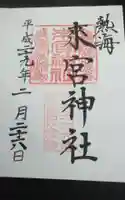 熱海
來宮神社
平成二十九年二月二十六日